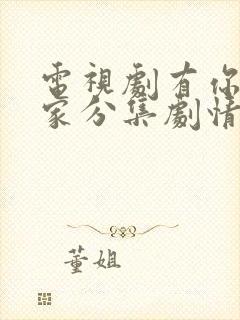 電視劇有你
家分集劇情
董姐